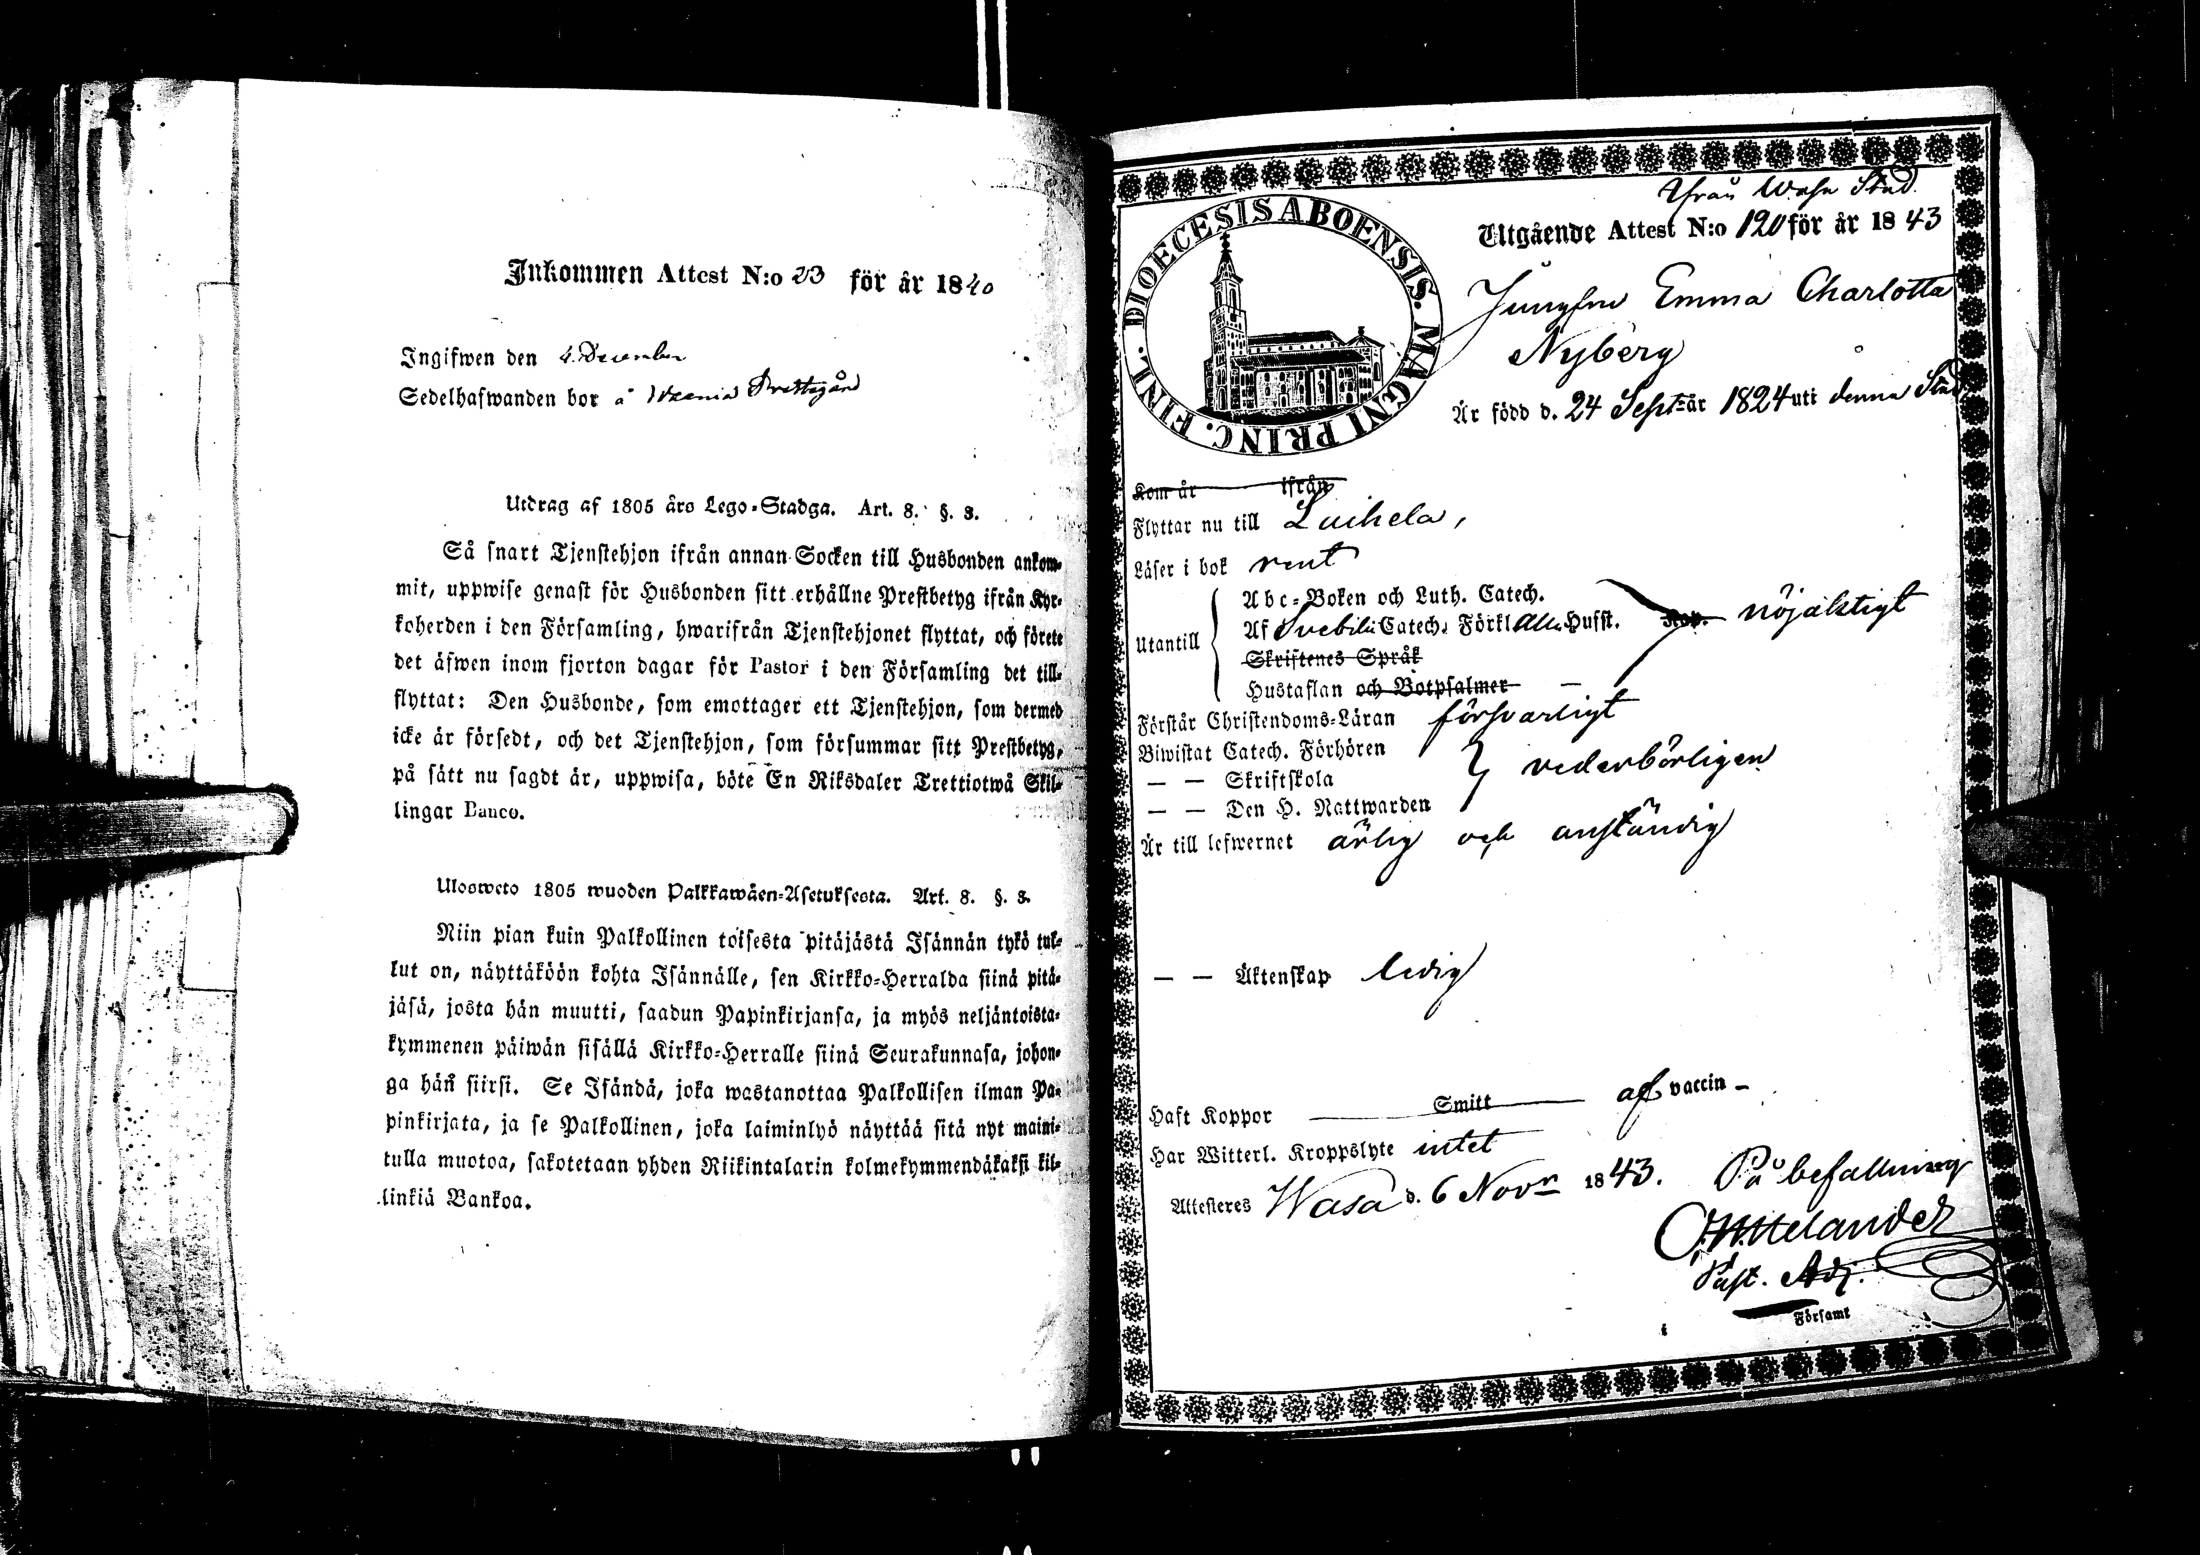 Inkommen Attest N:o 23 för år 1840
Ingifwen den 4 December
Sedelhafwanden bor å Prestgård
Utdrag af 1805 års Lego-Stadga. Art. 8. §. 3.
Så snart Tjenstehjon ifrån annan Socken till Husbonden ankom-
mit, uppwise genast för Husbonden sitt erhållne Prestbetyg ifrån Kyr-
koherden i den Församling, hwarifrån Tjenstehjonet flyttat, och förete
det äfwen inom fjorton dagar för Pastor i den Församling det till-
flyttat: Den Husbonde, som emottager ett Tjenstehjon, som dermed
icke är försedt, och det Tjenstehjon, som försummar sitt Prestbetyg,
på sätt nu sagdt är, uppwisa, böte En Riksdaler Trettiotwå Skil-
lingar Banco.
Ulosweto 1805 wuoden Palkkawäen-Asetuksesta. Art. 8. §. 3.
Niin pian kuin Palkollinen toisesta pitäjästä Isännän tykö tul-
lut on, näyttäköön kohta Isännälle, sen Kirkko-Herralda siinä pitä-
jäsä, josta hän muutti, saadun Papinkirjansa, ja myös neljäntoista-
kymmenen päiwän sisällä Kirkko-Herralle siinä Seurakunnasa, johon-
ga hän siirsi. Se Isändä, joka wastanottaa Palkollisen ilman Pa-
pinkirjata, ja se Palkollinen, joka laiminlyö näyttää sitä nyt maini-
tulla muotoa, sakotetaan yhden Riikintalarin kolmekymmendäkaksi kil-
linkiä Bankoa.
DIOECESIS ABOENSIS. MAGNI PRINC. FINL.
ifrån Wasa Stad.
Utgående Attest N:o 120 för år 1843
Jungfru Emma Charlotta
Nyberg
Är född d. 24 Sept. år 1824 uti denna Stad
Kom år ifrån
Flyttar nu till Laihela,
Läser i bok rent
Utantill
Abc-Boken och Luth. Catech.
Af Svebilii Catech. Förkl. Alla Husst. Kap. nöjaktigt
Skriftenes Språk
Hustaflan och Botpsalmer —
Förstår Christendoms-Läran försvarligt
Biwistat Catech. Förhören
— — Skriftskola vederbörligen
— — Den H. Nattwarden
Är till lefwernet ärlig och anständig
— — Äktenskap ledig
Haft Koppor Smitt af vaccin —
Har Witterl. Kroppslyte intet
Attesteras Wasa d. 6 Novr 1843. På befallning
Melander
Past. Adj.
i Församl